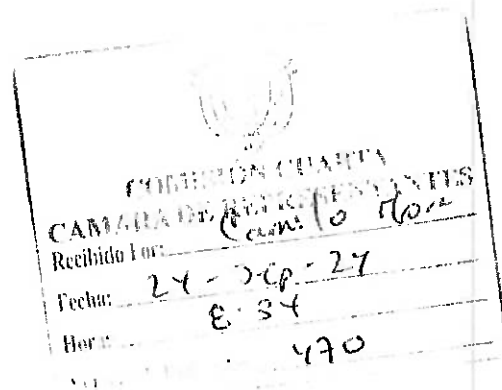 COMISIÓN CUARTA
CAMARA DE REPRESENTANTES
Recibido Por: Camilo
Fecha: 24-Sep-24
Hora:
470